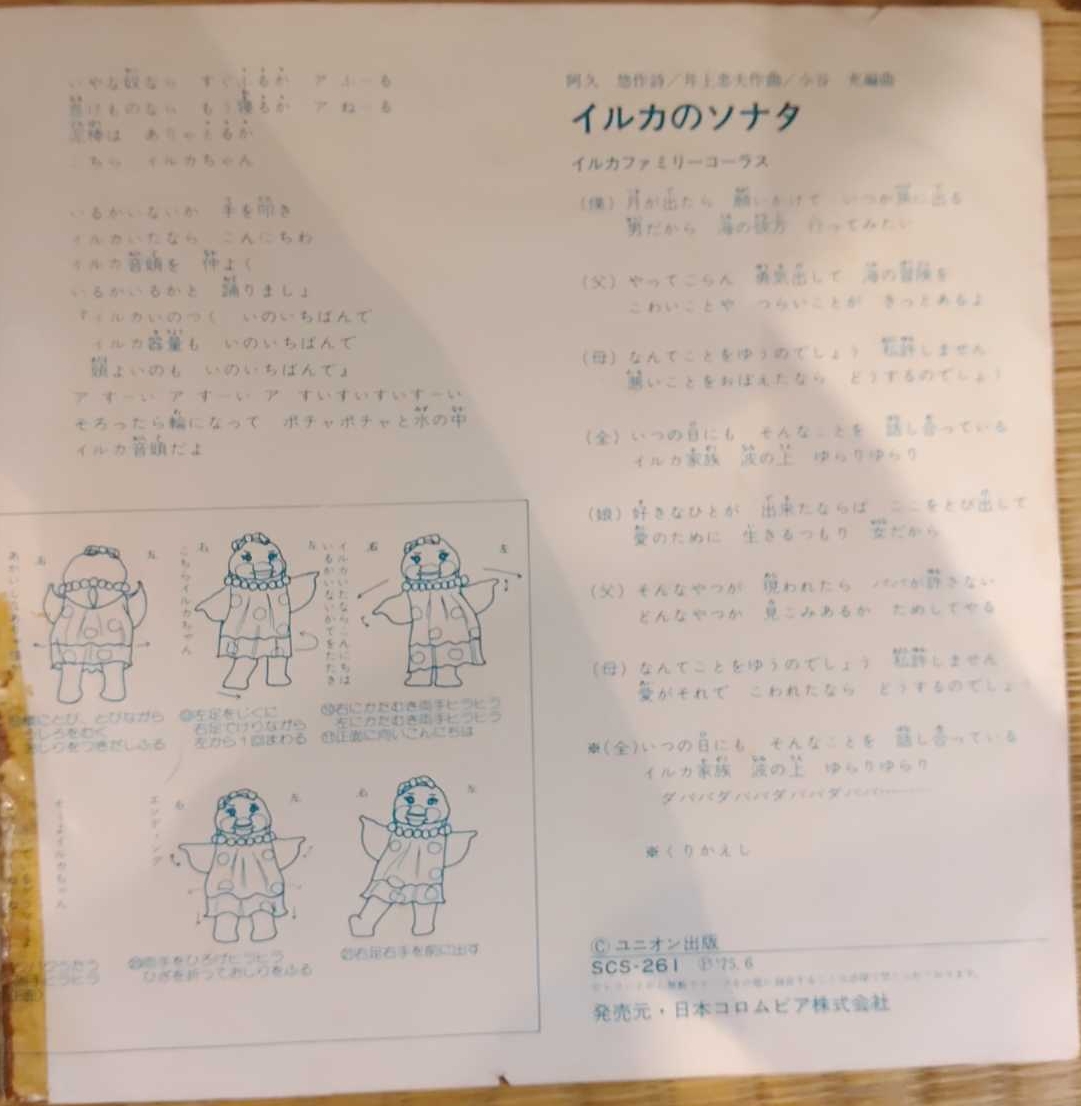 いやな奴なら すぐふるか ア ふーる
怠けものなら もう寝るか ア ねーる
泥棒は ありゃとるか
こちら イルカちゃん
いるかいないか 手を叩き
イルカいたなら こんにちわ
イルカ音頭を 仲よく
いるかいるかと 踊りましょ
『イルカいのつく いのいちばんで
イルカ容量も いのいちばんで
頭よいのも いのいちばんで』
ア すーい ア すーい ア すいすいすいすーい
そろったら輪になって ポチャポチャと水の中
イルカ音頭だよ
右
左
こちらイルカちゃん
右
左
イルカいたならこんにちは
いるかいないかてをたたき
右
左
にとび、とびながら
うしろをむく
おしりをつきだしふる
左足をじくに
右足でけりながら
左から1回まわる
右にかたむき両手ヒラヒラ
左にかたむき両手ヒラヒラ
正面に向いこんにちは
イルカちゃん
エンディング
右
左
右
左
両手をひろげヒラヒラ
ひざを折っておしりをふる
右足右手を前に出す
阿久 悠作詩/井上忠夫作曲/小谷 充編曲
イルカのソナタ
イルカファミリーコーラス
(僕) 月が出たら 願いかけて いつか旅に出る
男だから 海の彼方 行ってみたい
(父) やってごらん 勇気出して 海の冒険を
こわいことや つらいことが きっとあるよ
(母) なんてことをゆうのでしょう 私許しません
悪いことをおぼえたなら どうするのでしょう
(全) いつの日にも そんなことを 話し合っている
イルカ家族 波の上 ゆらりゆらり
(娘) 好きなひとが 出来たならば ここをとび出して
愛のために 生きるつもり 女だから
(父) そんなやつが 現われたら パパが許さない
どんなやつか 見こみあるか ためしてやる
(母) なんてことをゆうのでしょう 私許しません
愛がそれで こわれたなら どうするのでしょう
※(全)いつの日にも そんなことを 話し合っている
イルカ家族 波の上 ゆらりゆらり
ダバババダバババダバババダババ………
※くりかえし
Ⓒ ユニオン出版
SCS-261 Ⓟ'75.6
発売元・日本コロムビア株式会社